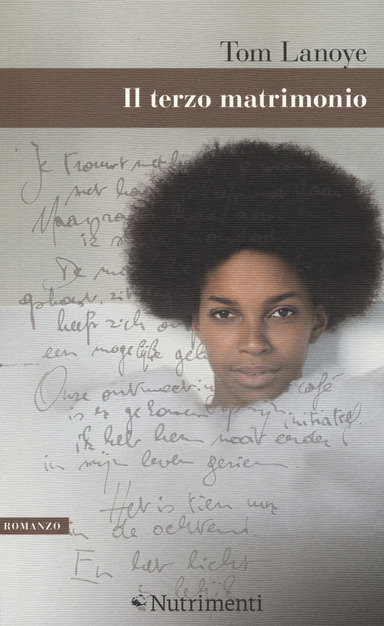 Tom Lanoye
Il terzo matrimonio
"Je trouwt met
met haar
Maar
is
De ma
ophoest, zit
heeft zich on
een mogelijke gel
Onze ontmoeting café
is er gekomen op zijn initiatief.
ik heb hem nooit eerder
in mijn leven gezien
Het is tien uur
in de ochtend.
En het licht
is lelijk
ROMANZO
Nutrimenti